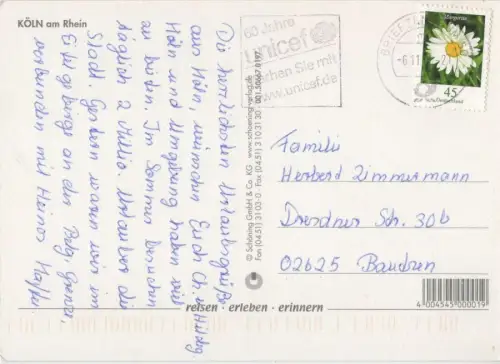 KÖLN am Rhein
Die herzlichsten Urlaubsgrüße
aus Köln, wünschen Euch Ch.
Köln und Umgebung haben viel
zu bieten. Im Sommer besuchen
täglich 2 Millio. Urlauber die
Stadt. Gestern waren wir im
an der Belg. Grenze.
verbunden mit
60 Jahre
unicef
Machen Sie mit
www.unicef.de
BRIEFZ
-6.11
45
Deutschland
© Schöning GmbH & Co. KG · www.schoening-verlag.de
Fon (04 51) 3 10 3-0 · Fax (04 51) 3 10 31 30 001 50667 0197
Familie
Herbert Zimmermann
Dresdner Str. 30b
02625 Bautzen
4 004545 000019
reisen · erleben · erinnern